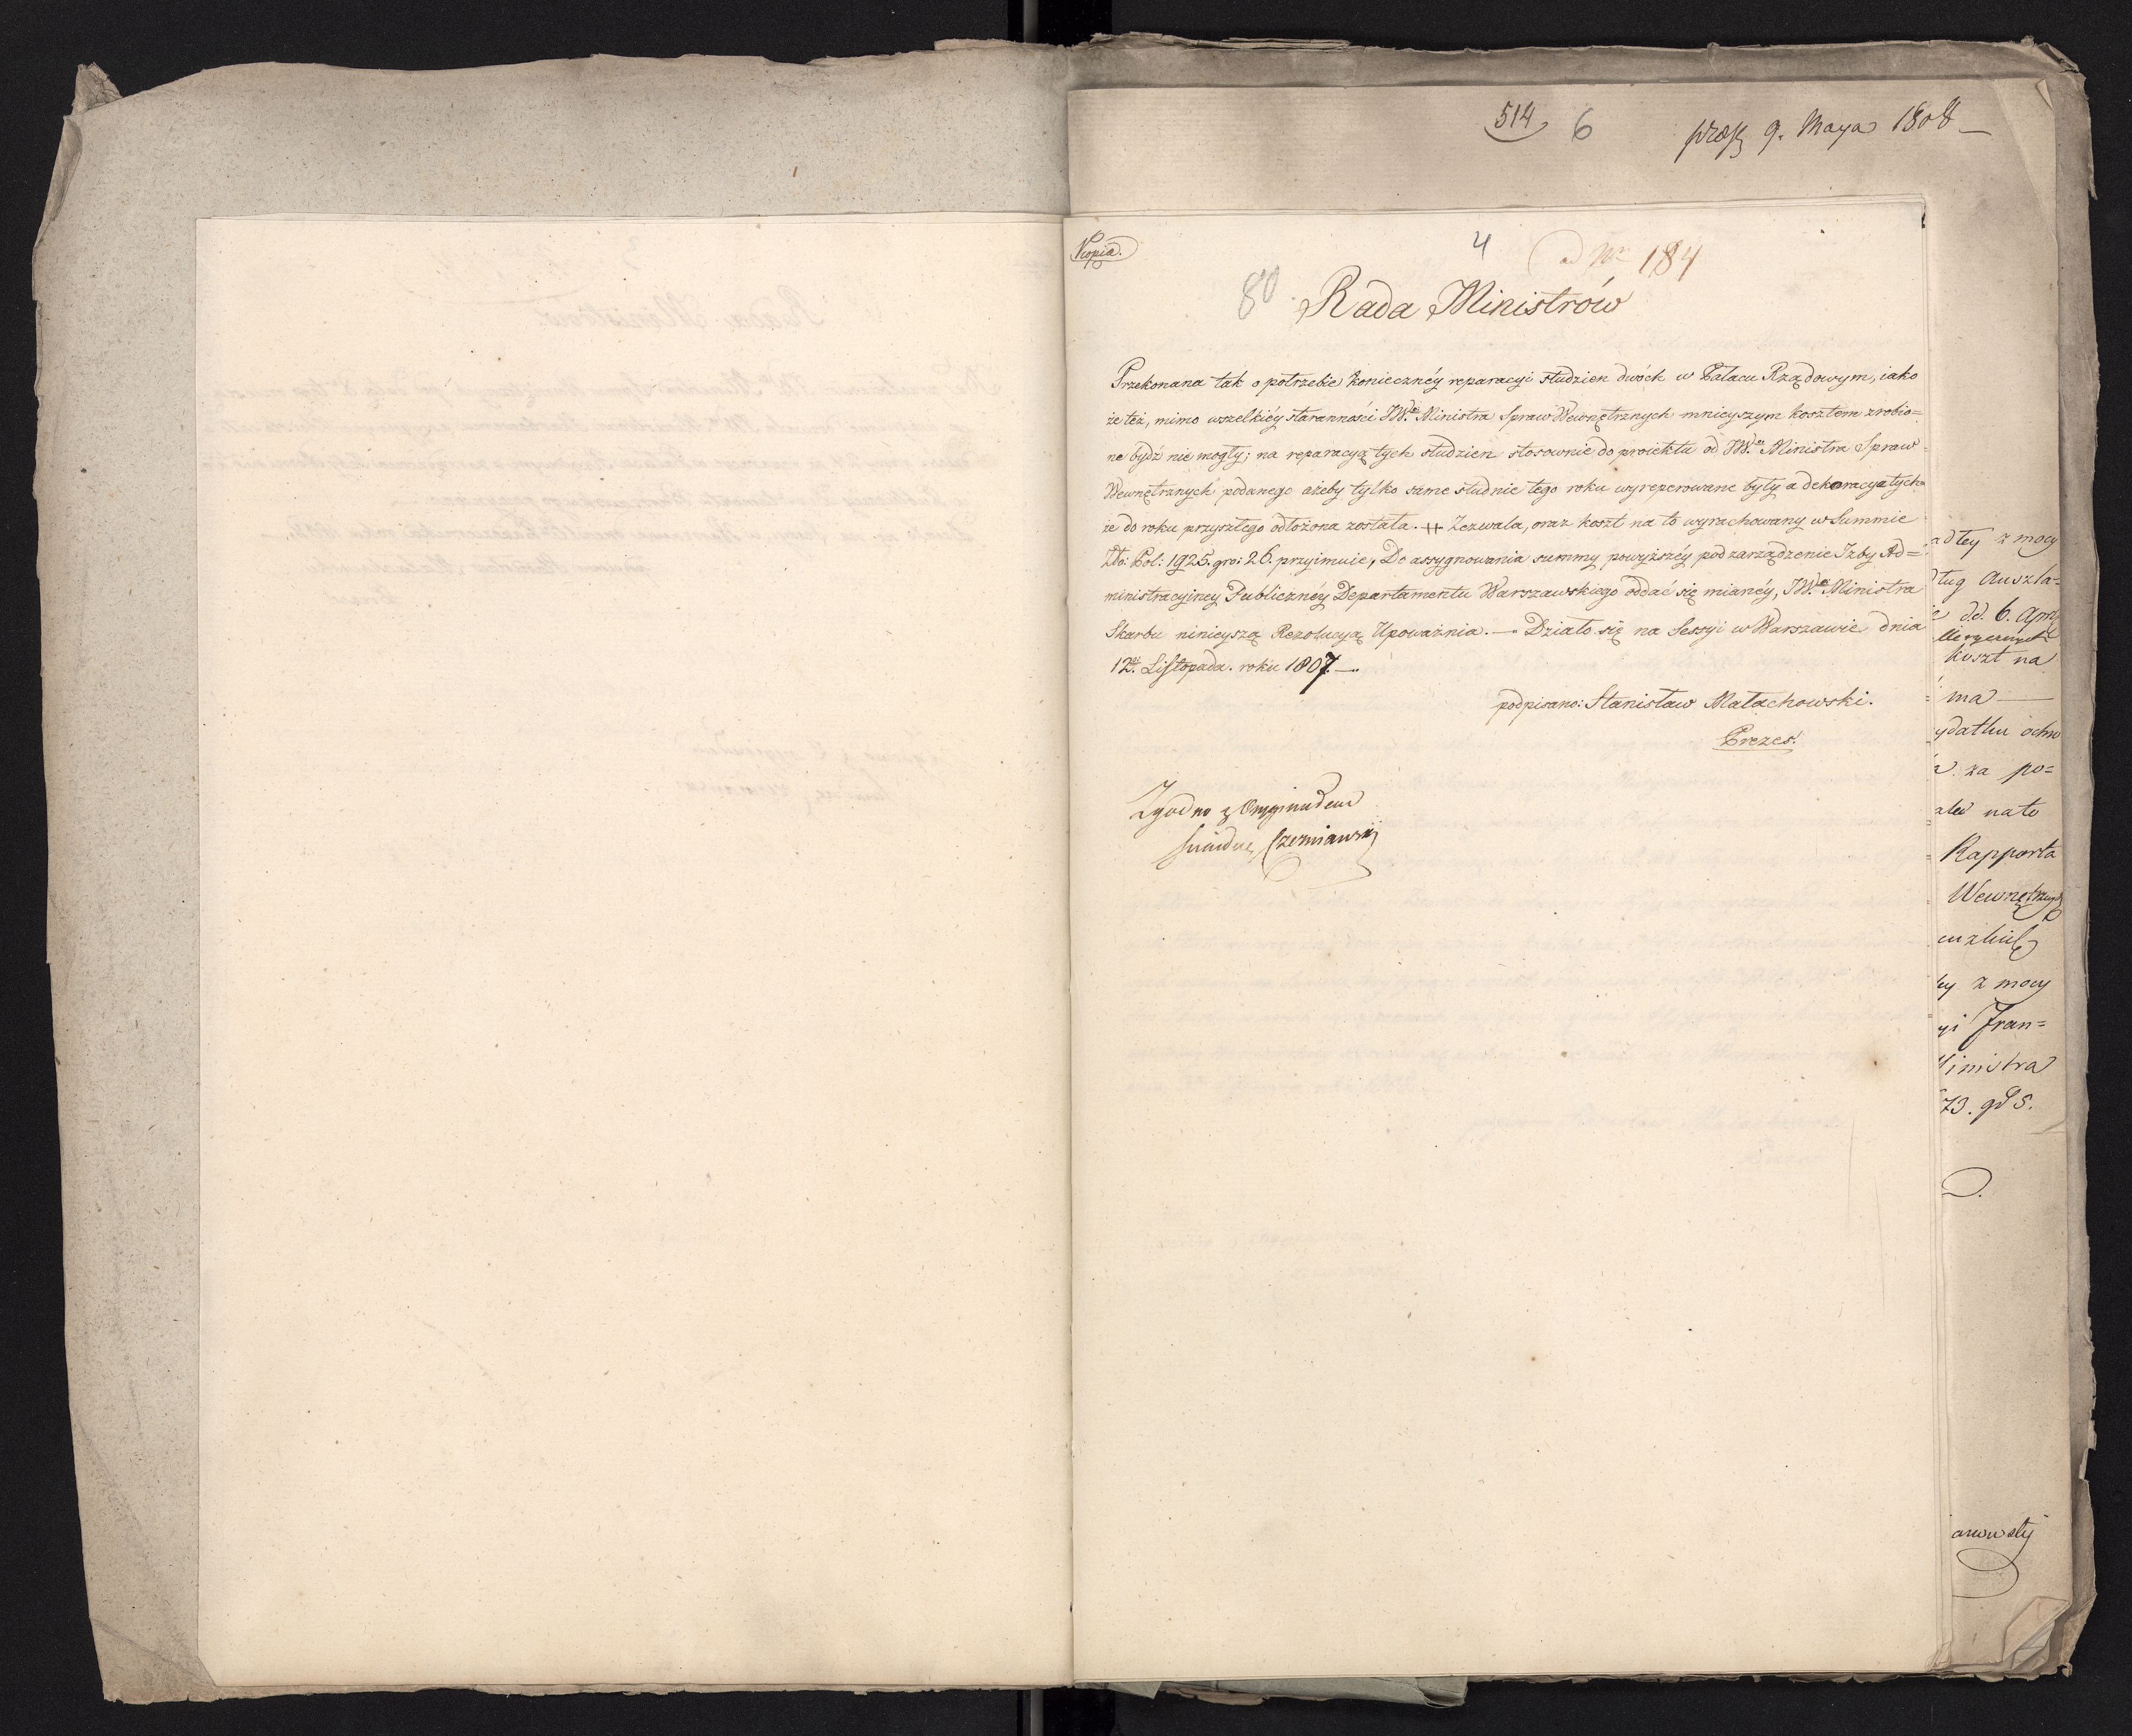 514 6 9. Maya 1808
Kopia.
4
ad Nr 184
80. Rada Ministrów
Przekonana tak o potrzebie konieczney reparacyi studzien dwóch w Pałacu Rządowym, iako
że też, mimo wszelkiéy staranności JW.o Ministra Spraw Wewnętrznych mnieyszym kosztem zrobio=
ne bydź nie mogły; na reparacyą tych studzien stosownie do proiektu od JW.o Ministra Spraw
Wewnętrznych podanego ażeby tylko same studnie tego roku wyreperowane były a dekoracya tych=
że do roku przyszłego odłożona została. Zezwala, oraz koszt na to wyrachowany w Summie
Zło: Pol: 1925. gro: 26. przyimuie, Do assygnowania summy powyższéy pod zarządzenie Izby Ad=
ministracyjney Publicznéy Departamentu Warszawskiego oddać się mianéy, JW.o Ministra
Skarbu ninieyszą Rezolucyą Upoważnia. — Działo się na Sessyi w Warszawie dnia
12. Listopada. roku 1807. —
podpisano: Stanisław Małachowski.
Prezes.
Zgodno z Oryginałem
Czerniawski
z mocy
Auszla=
dd. 6. Apr
koszt na
ma —
za po=
na to
Rapporta
Wewnętrzny
z mocy
yi Fran=
inistra
73. gd 5.